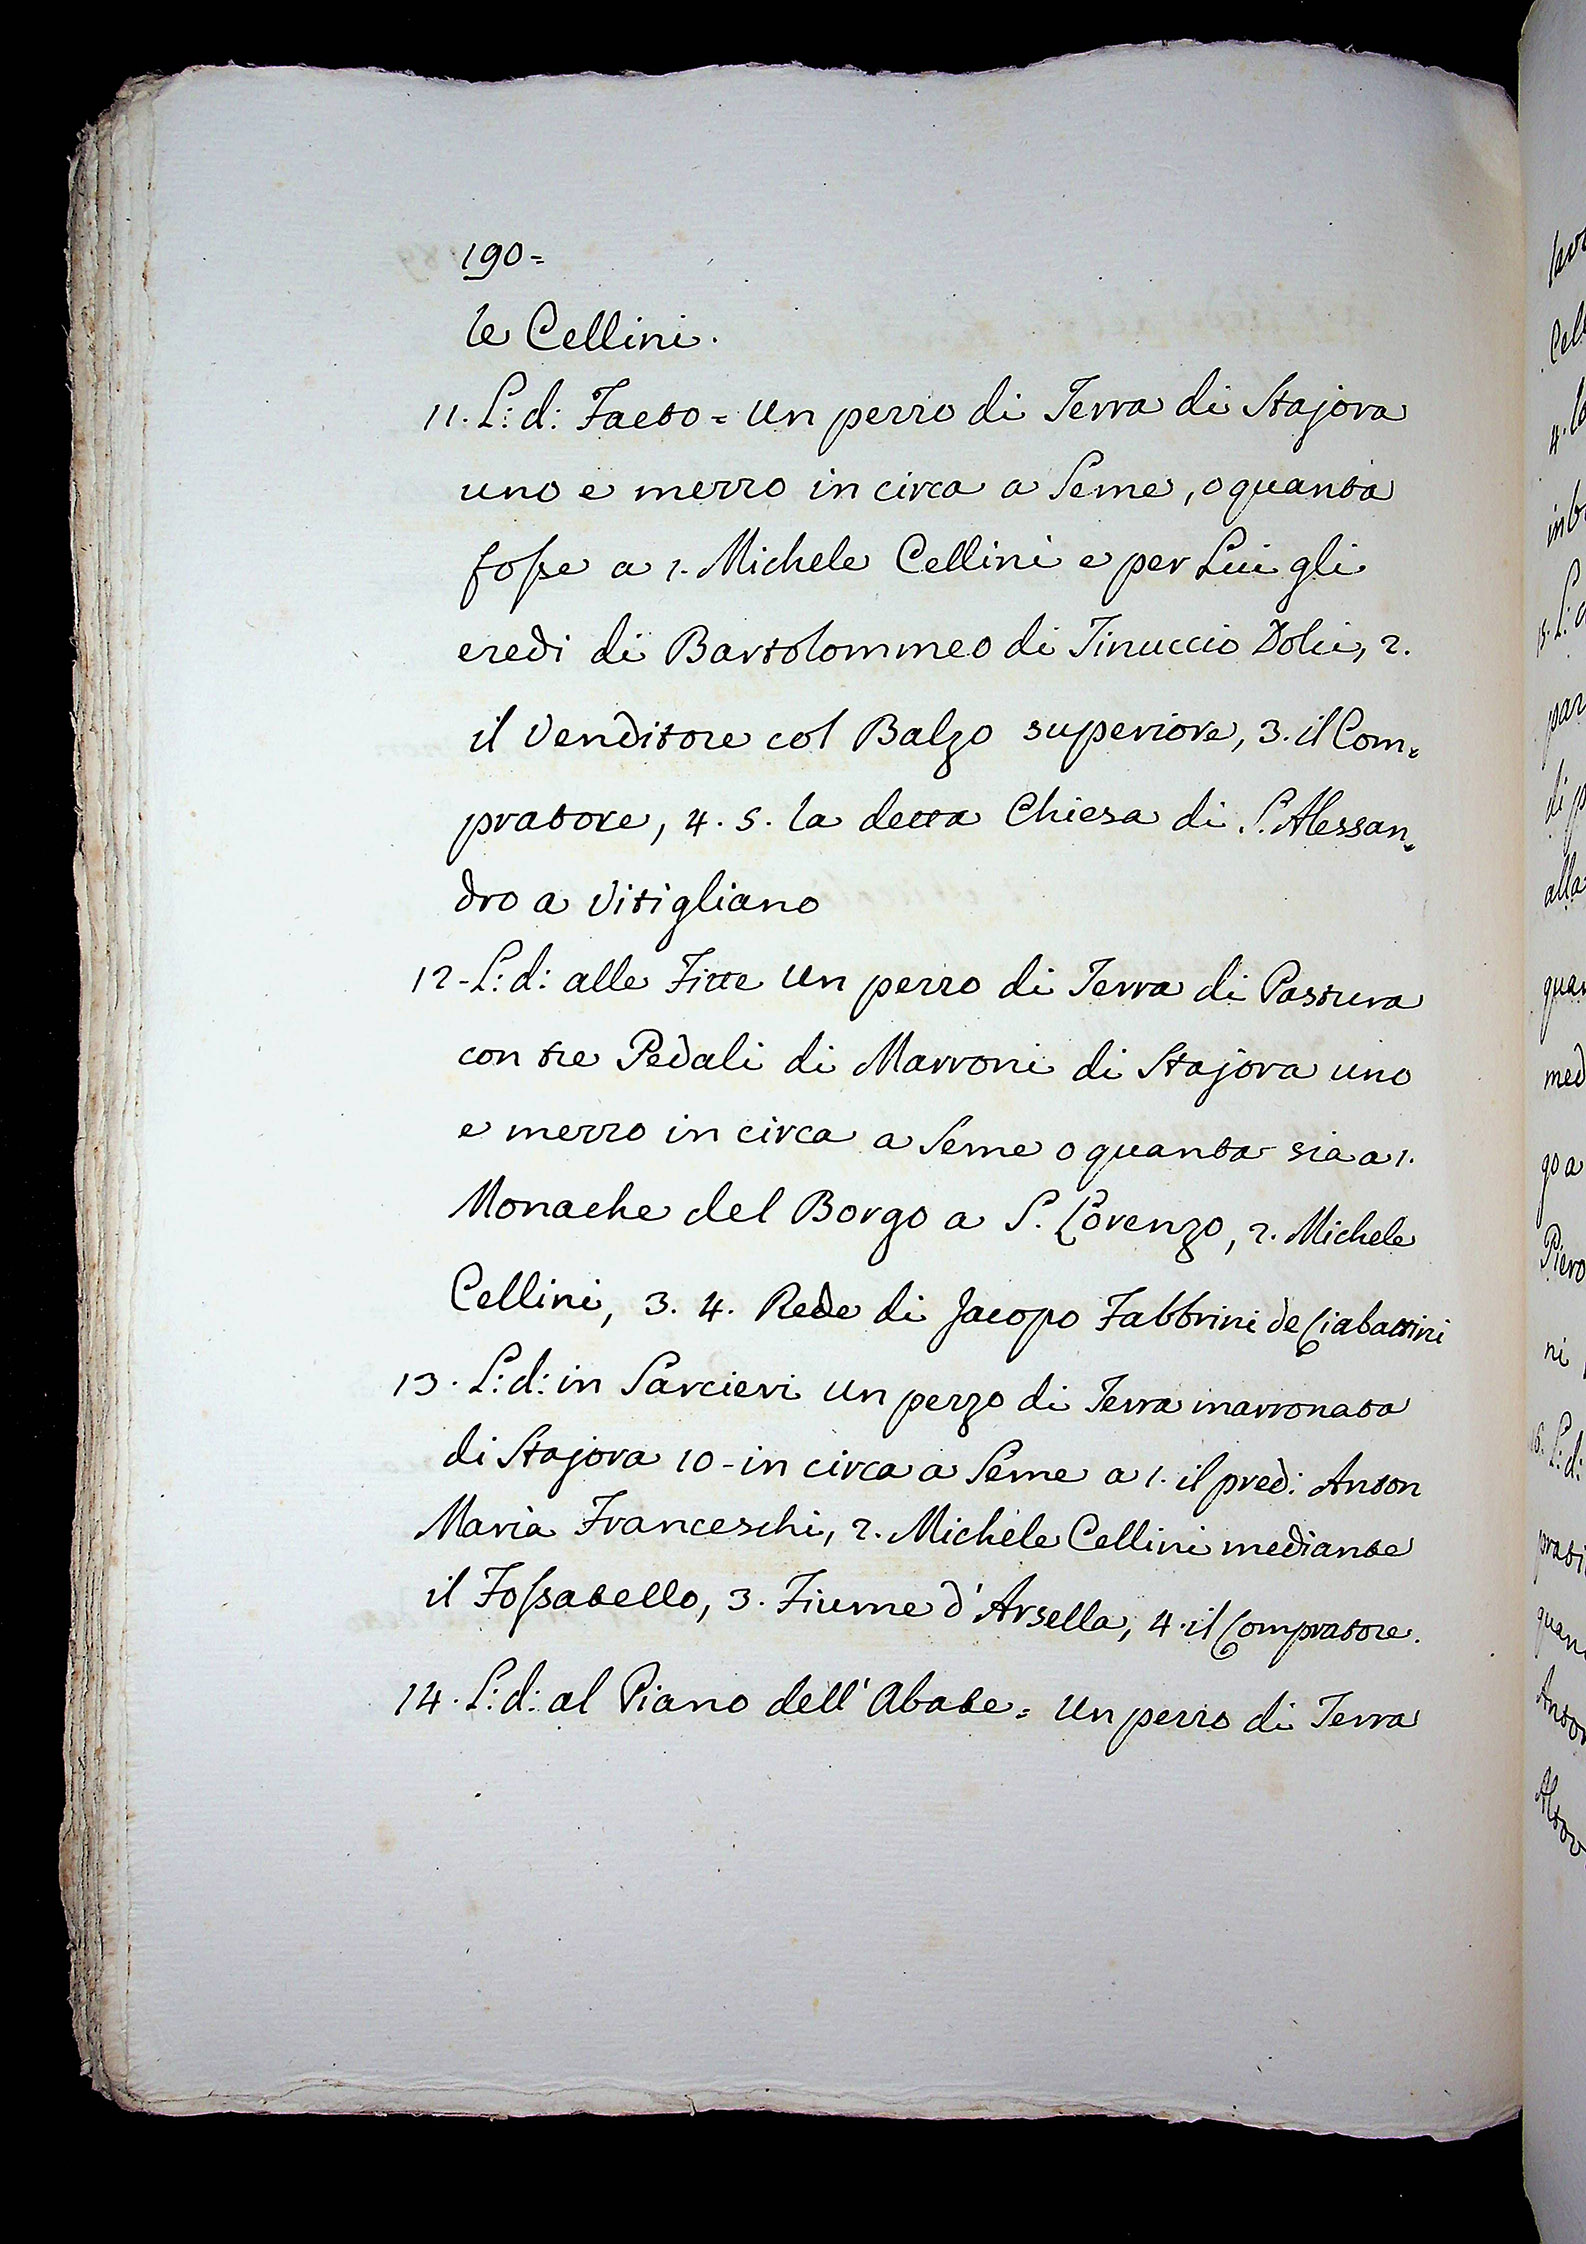 190=
le Cellini.
11. L: d: Faeto = Un pezzo di Terra di Stajora
uno e mezzo in circa a Seme, o quanta
fosse a 1. Michele Cellini e per Lui gli
eredi di Bartolommeo di Tinuccio Dolci, 2.
il Venditore col Balzo superiore, 3. il Com=
pratore, 4. 5. la detta Chiesa di S. Alessan=
dro a Vitigliano
12- L: d: alle Fitte Un pezzo di Terra di Pastura
con tre Pedali di Marroni di Stajora uno
e mezzo in circa a Seme o quanta sia a 1.
Monache del Borgo a S. Lorenzo, 2. Michele
Cellini, 3. 4. Rede di Jacopo Fabbrini de Ciabattini
13. L: d: in Sarcieri Un pezzo di Terra marronata
di Stajora 10 - in circa a Seme a 1. il pred: Anton
Maria Franceschi, 2. Michele Cellini mediante
il Fossatello, 3. Fiume d'Arsella, 4. il Compratore.
14. L: d: al Piano dell'Abate = Un pezzo di Terra